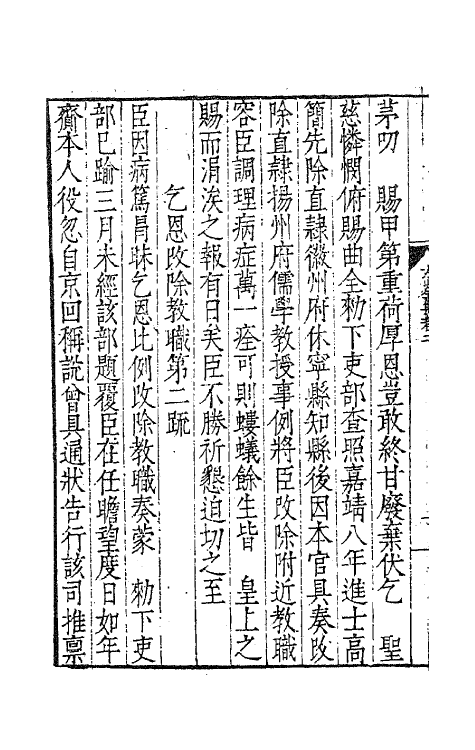 茅叨　賜甲第重荷厚恩豈敢終甘廢棄伏乞　聖
慈憐憫俯賜曲全勑下吏部查照嘉靖八年進士高
簡先除直隸徽州府休寧縣知縣後因本官具奏改
除直隸揚州府儒學教授事例將臣改除附近教職
容臣調理病症萬一痊可則螻蟻餘生皆　皇上之
賜而涓涘之報有日矣臣不勝祈懇迫切之至
乞恩改除教職第二疏
臣因病篤冐昧乞恩比例改除教職奏蒙　勑下吏
部已踰三月未經該部題覆臣在任瞻望度日如年
齎本人役忽自京回稱說曾具通狀告行該司推稟